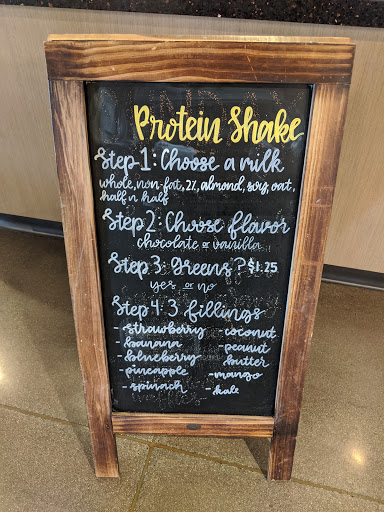 Protein Shake
Step 1: Choose a milk
whole, non-fat, 2%, almond, soy, oat,
half n half
Step 2: Choose flavor
chocolate or vanilla
Step 3: Greens? $1.25
yes or no
Step 4: 3 fillings
- strawberry - coconut
- banana - peanut
- blueberry butter
- pineapple - mango
- spinach - kale